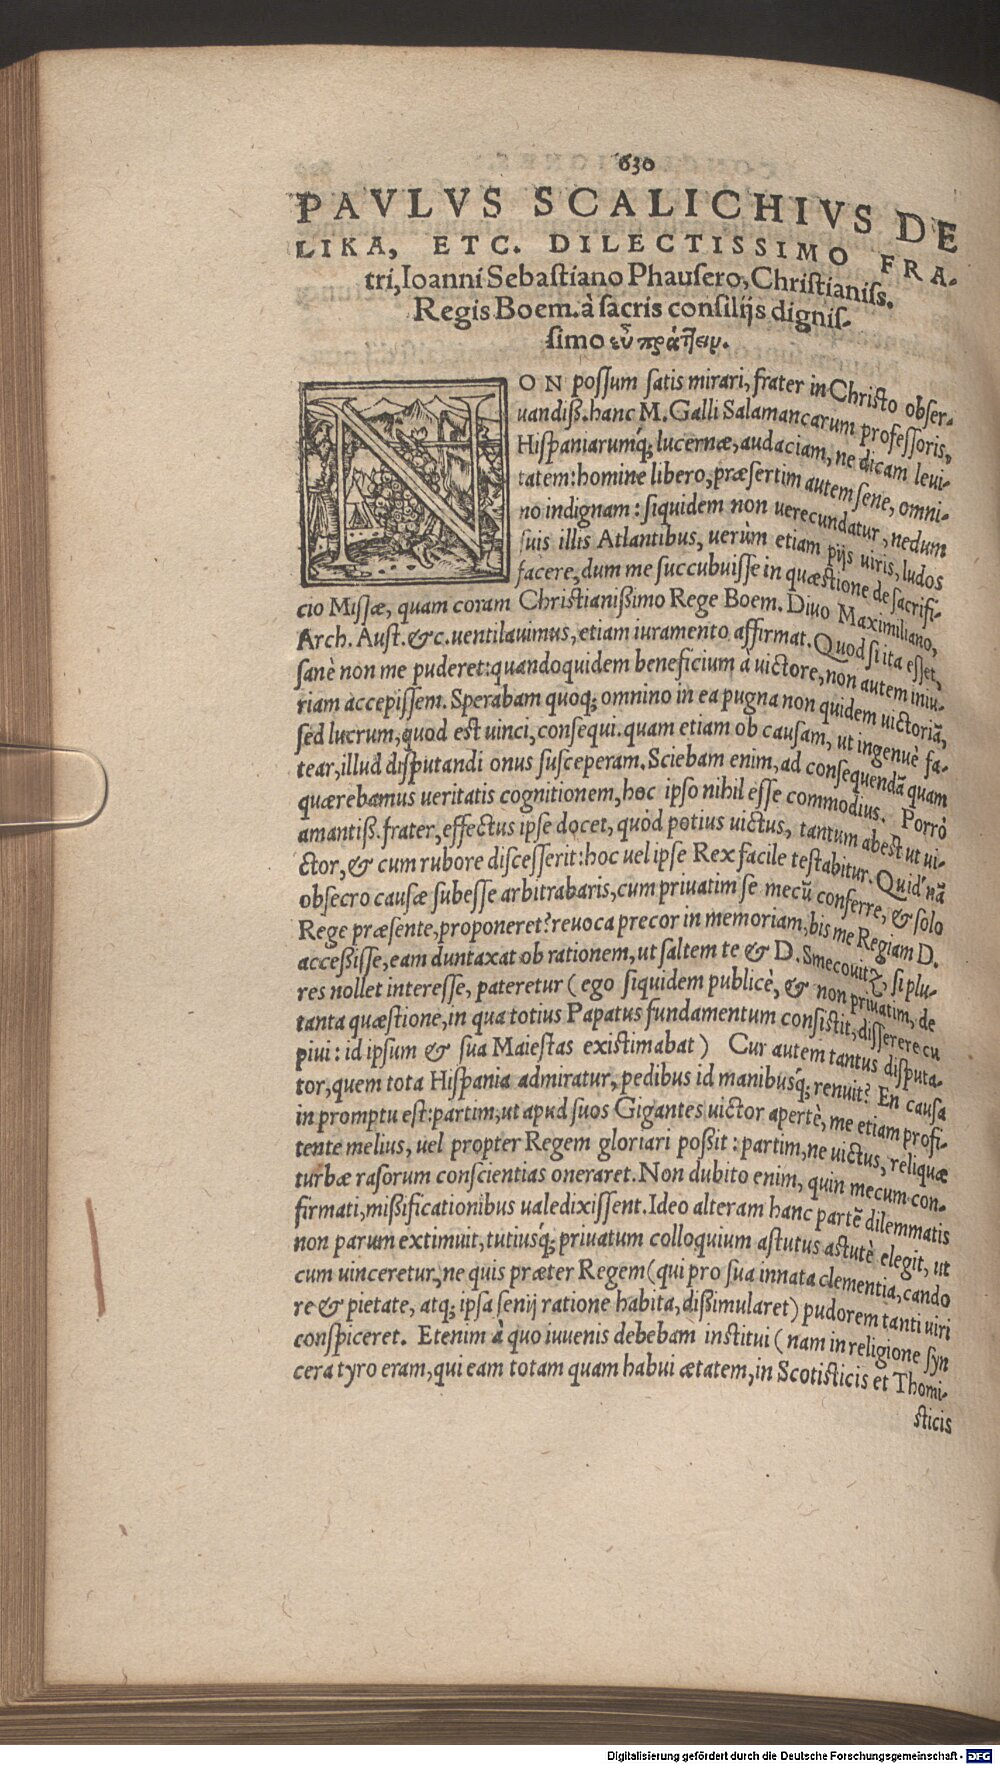 630
PAVLVS SCALICHIVS DE
LIKA, ETC. DILECTISSIMO FRA-
tri, Ioanni Sebastiano Phausero, Christianiss.
Regis Boem. à sacris consilijs dignis-
simo εὖ πράττειν.
NON possum satis mirari, frater in Christo obser-
uandiß. hanc M. Galli Salamancarum professoris,
Hispaniarumq́; lucernæ, audaciam, ne dicam leui-
tatem: homine libero, præsertim autem sene, omni-
no indignam: siquidem non uerecundatur, nedum
suis illis Atlantibus, uerùm etiam pijs uiris, ludos
facere, dum me succubuisse in quæstione de sacrifi-
cio Missæ, quam coram Christianißimo Rege Boem. Diuo Maximiliano,
Arch. Aust. &c. uentilauimus, etiam iuramento affirmat. Quod si ita esset,
sanè non me puderet: quandoquidem beneficium à uictore, non autem iniu-
riam accepissem. Sperabam quoq; omnino in ea pugna non quidem uictoriã,
sed lucrum, quod est uinci, consequi. quam etiam ob causam, ut ingenuè fa-
tear, illud disputandi onus susceperam. Sciebam enim, ad consequendã quam
quærebamus ueritatis cognitionem, hoc ipso nihil esse commodius. Porrò
amantiß. frater, effectus ipse docet, quòd potius uictus, tantum abest ut ui-
ctor, & cum rubore discesserit: hoc uel ipse Rex facile testabitur. Quid nã
obsecro causæ subesse arbitrabaris, cum priuatim se mecũ conferre, & solo
Rege præsente, proponeret? reuoca precor in memoriam, bis me Regiam D.
acceßisse, eam duntaxat ob rationem, ut saltem te & D. Smecouitz, si plu-
res nollet interesse, pateretur (ego siquidem publicè, & non priuatim, de
tanta quæstione, in qua totius Papatus fundamentum consistit, disserere cu
piui: id ipsum & sua Maiestas existimabat) Cur autem tantus disputa-
tor, quem tota Hispania admiratur, pedibus id manibusq́; renuit? En causa
in promptu est: partim, ut apud suos Gigantes uictor apertè, me etiam profi-
tente melius, uel propter Regem gloriari poßit: partim, ne uictus, reliquæ
turbæ rasorum conscientias oneraret. Non dubito enim, quin mecum con-
firmati, mißificationibus ualedixissent. Ideo alteram hanc partẽ dilemmatis
non parum extimuit, tutiusq́; priuatum colloquium astutus astutè elegit, ut
cum uinceretur, ne quis præter Regem (qui pro sua innata clementia, cando
re & pietate, atq; ipsa senij ratione habita, dißimularet) pudorem tanti uiri
conspiceret. Etenim à quo iuuenis debebam institui (nam in religione syn
cera tyro eram, qui eam totam quam habui ætatem, in Scotisticis et Thomi-
sticis
Digitalisierung gefördert durch die Deutsche Forschungsgemeinschaft - DFG